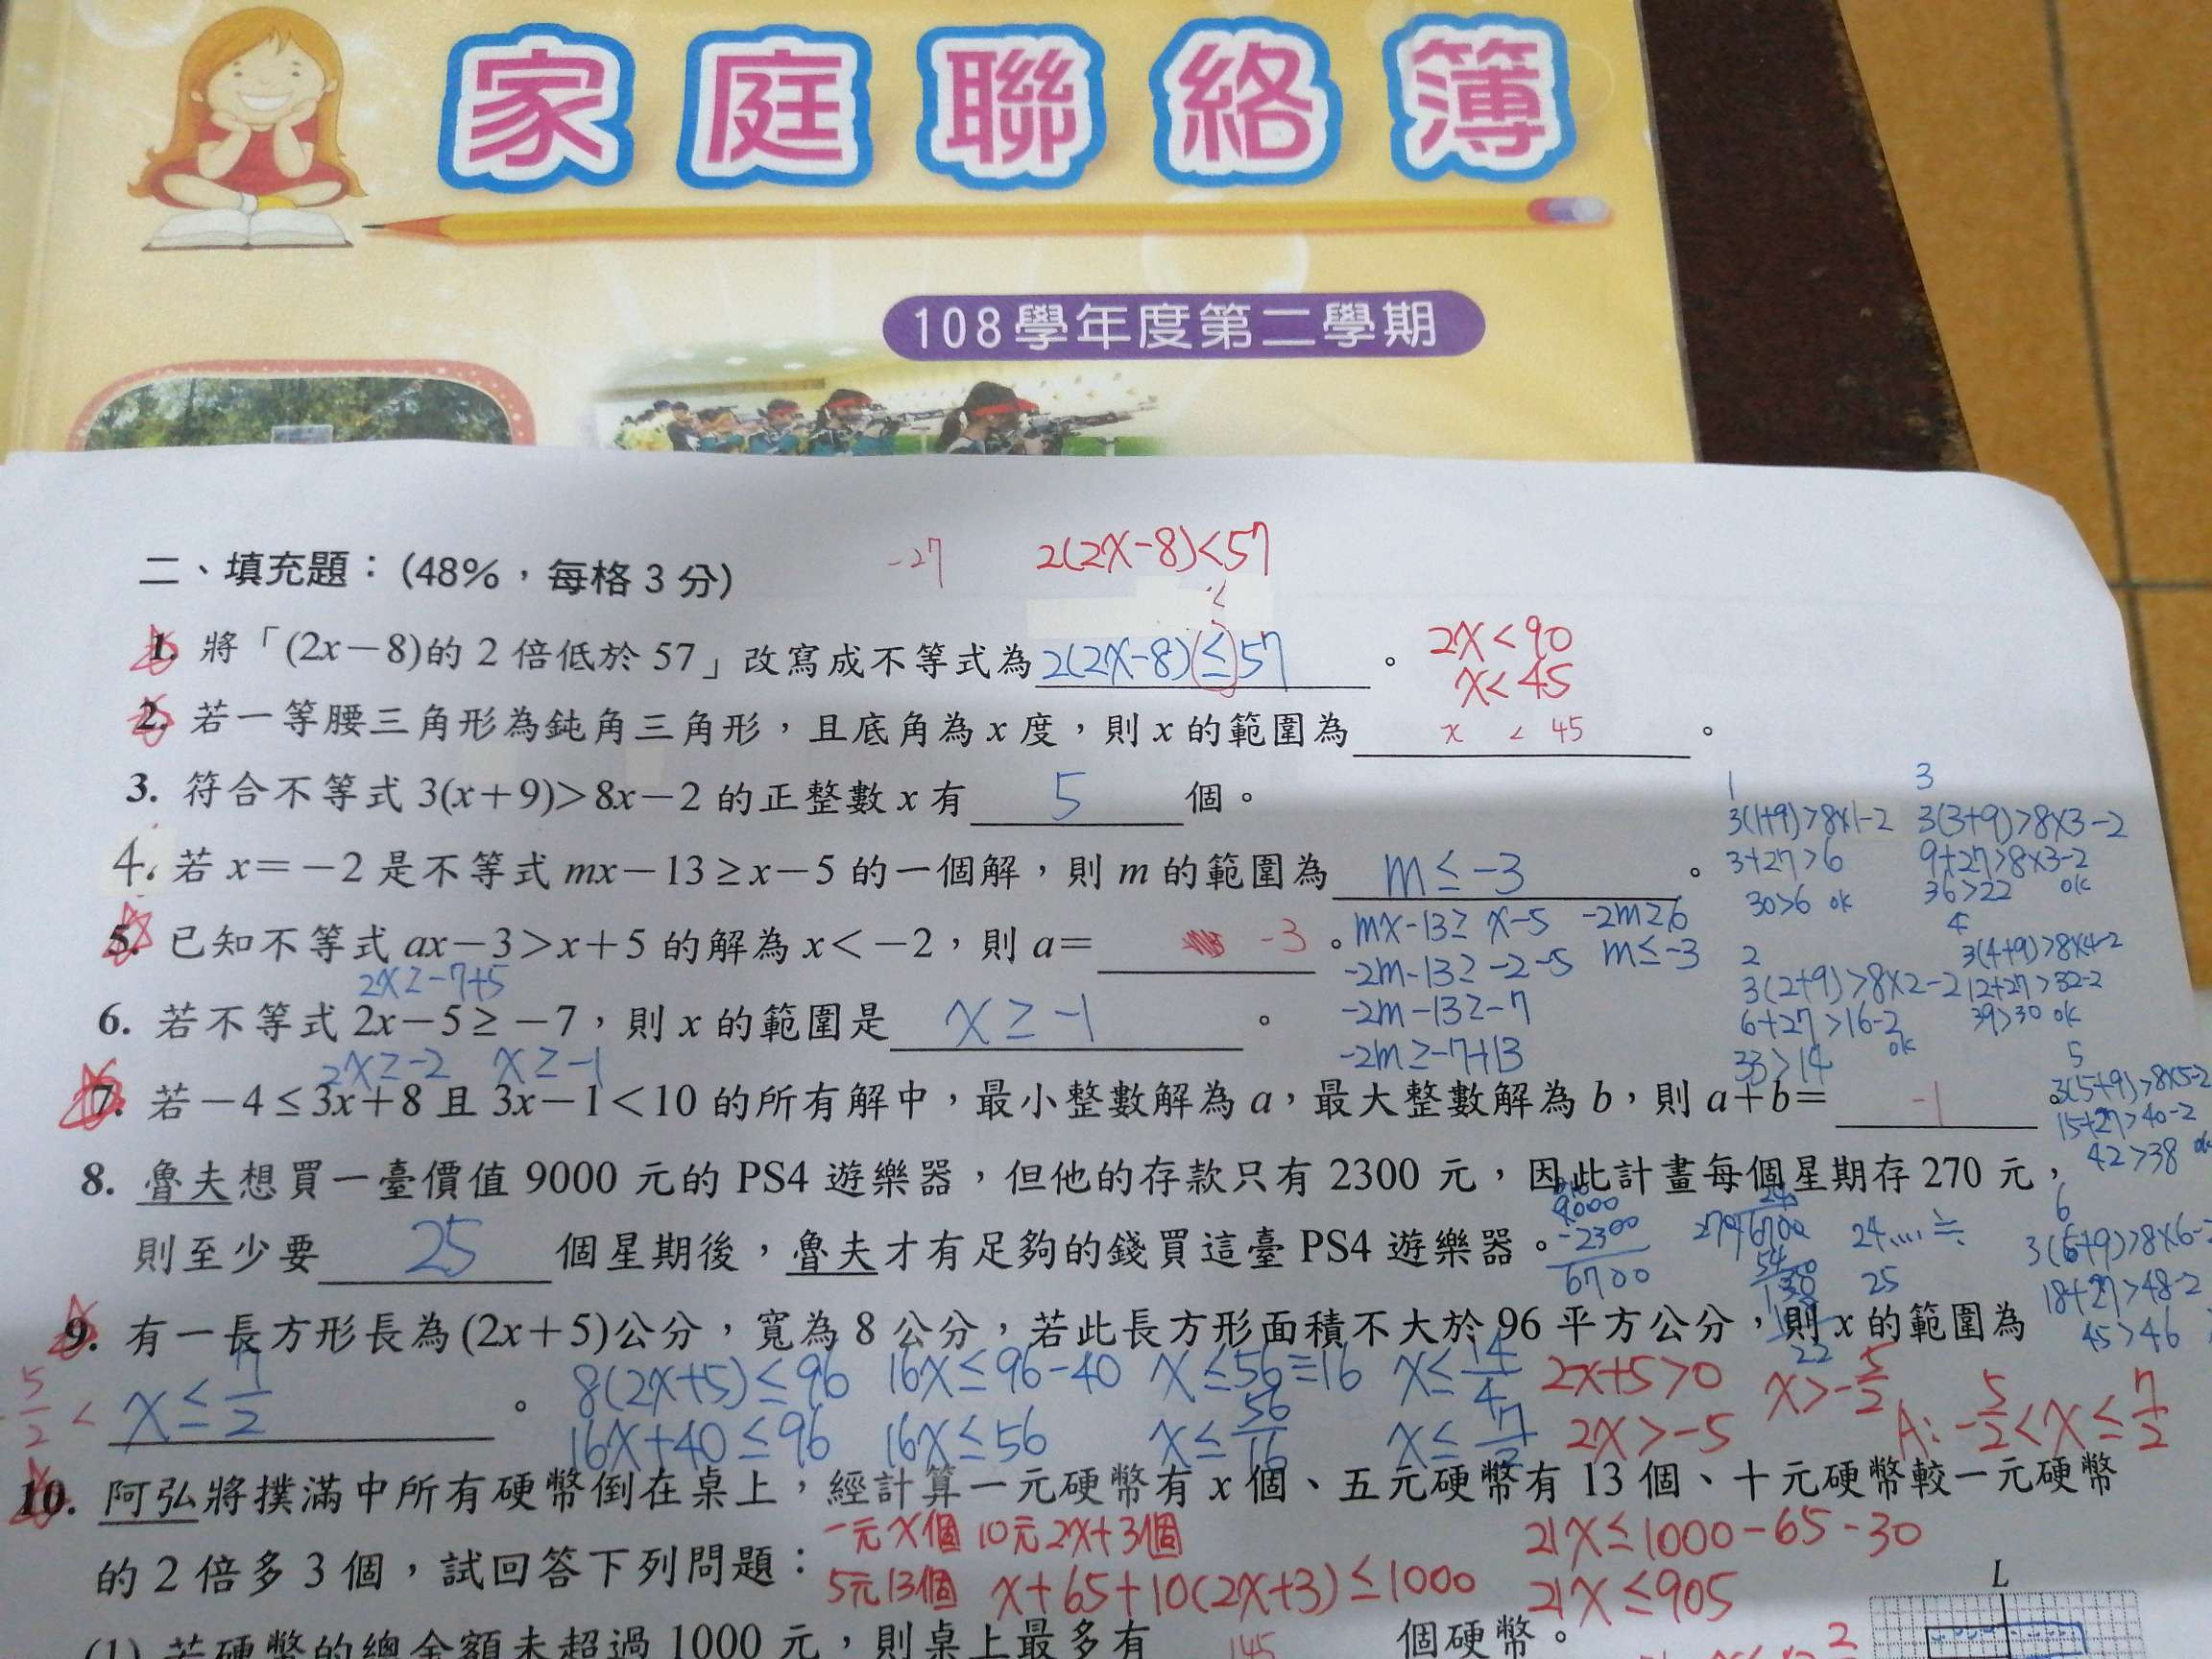 家庭聯絡簿
108學年度第二學期
-27 2(2X-8)<57
二、填充題：(48%，每格3分)
<
1. 將「(2x-8)的2倍低於57」改寫成不等式為 2(2X-8)≤57 。 2X<90
X<45
2. 若一等腰三角形為鈍角三角形，且底角為x度，則x的範圍為 x < 45 。
3. 符合不等式3(x+9)>8x-2的正整數x有 5 個。
4. 若x=-2是不等式mx-13≥x-5的一個解，則m的範圍為 m≤-3 。
mx-13≥x-5 -2m≥6
-2m-13≥-2-5 m≤-3
-2m-13≥-7
-2m≥-7+13
5. 已知不等式ax-3>x+5的解為x<-2，則a= -3 。
2X≥-7+5
6. 若不等式2x-5≥-7，則x的範圍是 X≥-1 。
2X≥-2 X≥-1
1
3(1+9)>8x1-2
3+27>6
30>6 ok
2
3(2+9)>8x2-2
6+27>16-2
33>14 ok
3
3(3+9)>8x3-2
9+27>8x3-2
36>22 ok
4
3(4+9)>8x4-2
12+27>32-2
39>30 ok
5
3(5+9)>8x5-2
15+27>40-2
42>38 ok
6
3(6+9)>8x6-2
18+27>48-2
45>46
7. 若-4≤3x+8且3x-1<10的所有解中，最小整數解為a，最大整數解為b，則a+b= -1 。
8. 魯夫想買一臺價值9000元的PS4遊樂器，但他的存款只有2300元，因此計畫每個星期存270元，
則至少要 25 個星期後，魯夫才有足夠的錢買這臺PS4遊樂器。
9000
-2300
6700
24....≒
25
9. 有一長方形長為(2x+5)公分，寬為8公分，若此長方形面積不大於96平方公分，則x的範圍為
5/2 < X≤7/2 。
8(2X+5)≤96 16X≤96-40 X≤56÷16 X≤14/4 2X+5>0 X>-5/2
16X+40≤96 16X≤56 X≤56/16 X≤7/2 2X>-5 A:-5/2<X≤7/2
10. 阿弘將撲滿中所有硬幣倒在桌上，經計算一元硬幣有x個、五元硬幣有13個、十元硬幣較一元硬幣
的2倍多3個，試回答下列問題：
一元X個 10元2X+3個 21X≤1000-65-30
5元13個 X+65+10(2X+3)≤1000 21X≤905
(1) 若硬幣的總金額未超過1000元，則桌上最多有 145 個硬幣。
L